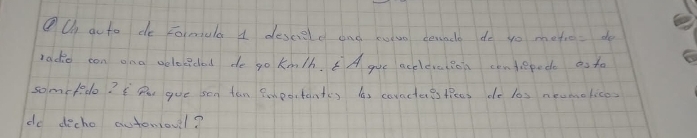 ① Un auto de Formula 1 describe una curva cerrada de 40 metros de
radio con una velocidad de 90 Km/h. ¿ A que aceleracion centripeda esta
sometido? ¿ Por que son tan importantes las caracteristicas de los neumaticos
de dicho automovil?